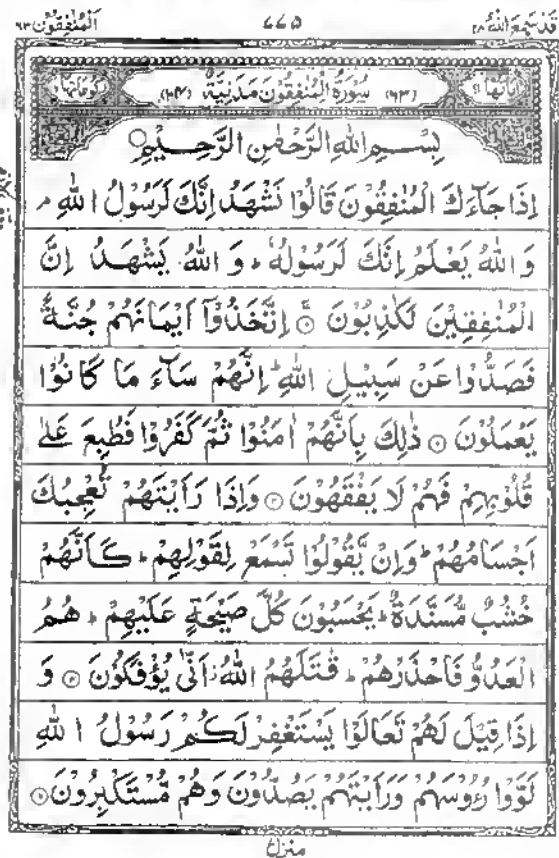 قَدْ سَمِعَ اللّٰهُ ٢٨ ٧٧٥ اَلْمُنٰفِقُوْنَ ٦٣
اٰيَاتُهَا ١١ (٦٣) سُوْرَةُ الْمُنٰفِقُوْنَ مَدَنِيَّةٌ (١٠٤) رُكُوْعَاتُهَا ٢
بِسْمِ اللّٰهِ الرَّحْمٰنِ الرَّحِيْمِ
اِذَا جَآءَكَ الْمُنٰفِقُوْنَ قَالُوْا نَشْهَدُ اِنَّكَ لَرَسُوْلُ اللّٰهِ ۘ
وَ اللّٰهُ يَعْلَمُ اِنَّكَ لَرَسُوْلُهٗ ؕ وَ اللّٰهُ يَشْهَدُ اِنَّ
الْمُنٰفِقِيْنَ لَكٰذِبُوْنَ ۚ اِتَّخَذُوْۤا اَيْمَانَهُمْ جُنَّةً
فَصَدُّوْا عَنْ سَبِيْلِ اللّٰهِ ؕ اِنَّهُمْ سَآءَ مَا كَانُوْا
يَعْمَلُوْنَ ۞ ذٰلِكَ بِاَنَّهُمْ اٰمَنُوْا ثُمَّ كَفَرُوْا فَطُبِعَ عَلٰى
قُلُوْبِهِمْ فَهُمْ لَا يَفْقَهُوْنَ ۞ وَاِذَا رَاَيْتَهُمْ تُعْجِبُكَ
اَجْسَامُهُمْ ؕ وَاِنْ يَّقُوْلُوْا تَسْمَعْ لِقَوْلِهِمْ ؕ كَاَنَّهُمْ
خُشُبٌ مُّسَنَّدَةٌ ؕ يَحْسَبُوْنَ كُلَّ صَيْحَةٍ عَلَيْهِمْ ؕ هُمُ
الْعَدُوُّ فَاحْذَرْهُمْ ؕ قٰتَلَهُمُ اللّٰهُ ؗ اَنّٰى يُؤْفَكُوْنَ ۞ وَ
اِذَا قِيْلَ لَهُمْ تَعَالَوْا يَسْتَغْفِرْ لَكُمْ رَسُوْلُ اللّٰهِ
لَوَّوْا رُءُوْسَهُمْ وَرَاَيْتَهُمْ يَصُدُّوْنَ وَهُمْ مُّسْتَكْبِرُوْنَ ۞
منزل